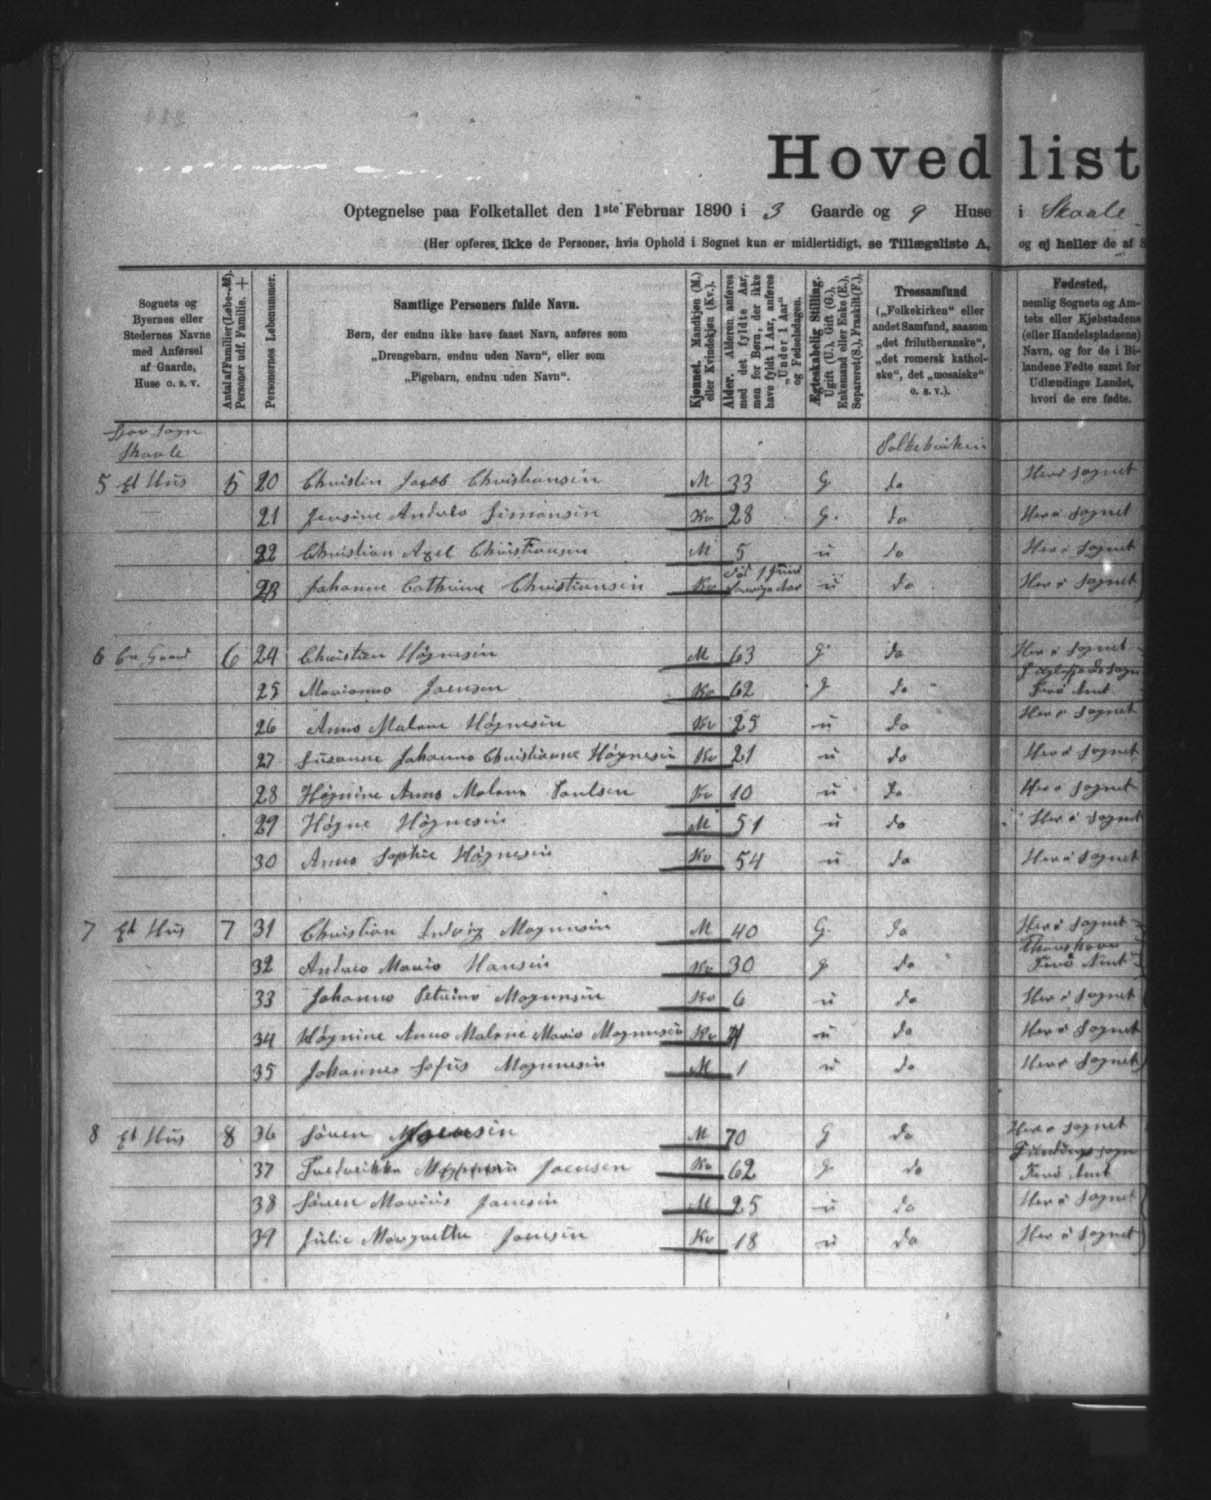 Hovedlist
Optegnelse paa Folketallet den 1ste Februar 1890 i 3 Gaarde og 9 Huse i Skaale
(Her opføres ikke de Personer, hvis Ophold i Sognet kun er midlertidigt, se Tillægsliste A, og ej heller de af S
Sognets og Byernes eller Stedernes Navne med Anførsel af Gaarde, Huse o. s. v.
Antal af Familier (Løbe-№). Personer udf. Familie. +
Personernes Løbenummer.
Samtlige Personers fulde Navn.
Børn, der endnu ikke have faaet Navn, anføres som
„Drengebarn, endnu uden Navn“, eller som
„Pigebarn, endnu uden Navn“.
Kjønnet. Mandkjøn (M.) eller Kvindekjøn (Kv.).
Alder. Alderen anføres med det fyldte Aar, men for Børn, der ikke have fyldt 1 Aar, anføres „Under 1 Aar“ og Fødselsdagen.
Ægteskabelig Stilling. Ugift (U.), Gift (G.), Enkemand eller Enke (E.), Separeret (S.), Fraskilt (F.).
Trossamfund („Folkekirken“ eller andet Samfund, saasom „det frilutheranske“, „det romersk katholske“, det „mosaiske“ o. s. v.).
Fødested, nemlig Sognets og Amtets eller Kjøbstadens (eller Handelspladsens) Navn, og for de i Bilandene Fødte samt for Udlændinge Landet, hvori de ere fødte.
Sogn
Skaale Folkekirken
5 Et Hus 5 20 Christen Jacob Christiansen M 33 G do Her i Sognet
21 Jensine Andrea Simonsen Kv 28 G. do Her i Sognet
22 Christian Axel Christiansen M 5 u do Her i Sognet
23 Johanne Cathrine Christiansen Kv u do Her i Sognet
6 En Gaard 6 24 Christen Høgnesen M 63 g do Her i Sognet
25 Marianne Joensen Kv 62 g do Færø Amt
26 Anna Malene Høgnesen Kv 25 u do Her i Sognet
27 Susanne Johanna Christianne Høgnesen Kv 21 u do Her i Sognet
28 Høgnine Anna Malena Poulsen Kv 10 u do Her i Sognet
29 Høgne Høgnesen M 51 u do Her i Sognet
30 Anna Sophie Høgnesen Kv 54 u do Her i Sognet
7 Et Hus 7 31 Christian Ludvig Magnusen M 40 G. do Her i Sognet
32 Andrea Maria Hansen Kv 30 g do Thorshavn Færø Amt
33 Johanna Petrina Magnusen Kv 6 u do Her i Sognet
34 Høgnine Anna Malene Maria Magnusen Kv u do Her i Sognet
35 Johannes Sofus Magnusen M 1 u do Her i Sognet
8 Et Hus 8 36 Søren Joensen M 70 G do Her i Sognet
37 Fredrikka Joensen Kv 62 g. do Færø Amt
38 Søren Marius Joensen M 25 u do Her i Sognet
39 Julie Margrethe Joensen Kv 18 u do Her i Sognet